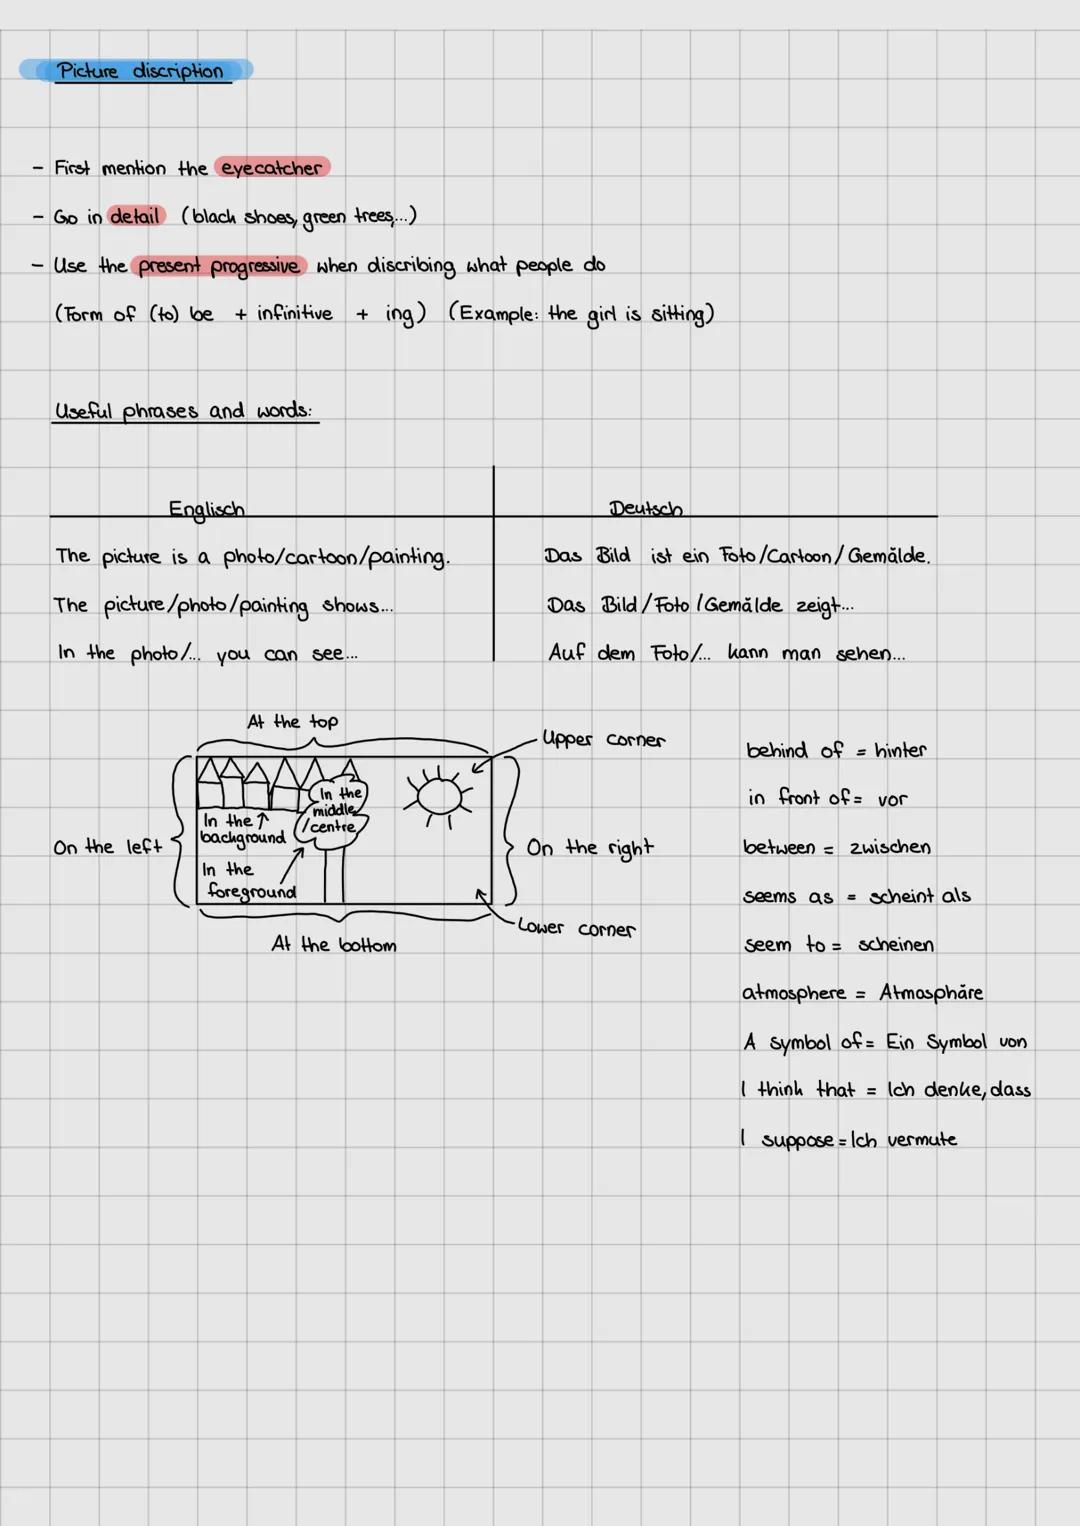 Picture discription
- First mention the eyecatcher
- Go in detail (black shoes, green trees,...)
- Use the present progressive when discribing what people do
(Form of (to) be + infinitive + ing) (Example: the girl is sitting)
Useful phrases and words:
Englisch
Deutsch
The picture is a photo/cartoon/painting.
Das Bild ist ein Foto/Cartoon/Gemälde.
The picture/photo/painting shows...
Das Bild/Foto/Gemälde zeigt...
In the photo/... you can see...
Auf dem Foto/... kann man sehen...
At the top
Upper corner
On the left
In the background
In the foreground
In the middle/centre
On the right
Lower corner
At the bottom
behind of = hinter
in front of = vor
between = zwischen
seems as = scheint als
seem to = scheinen
atmosphere = Atmosphäre
A symbol of = Ein Symbol von
I think that = Ich denke, dass
I suppose = Ich vermute